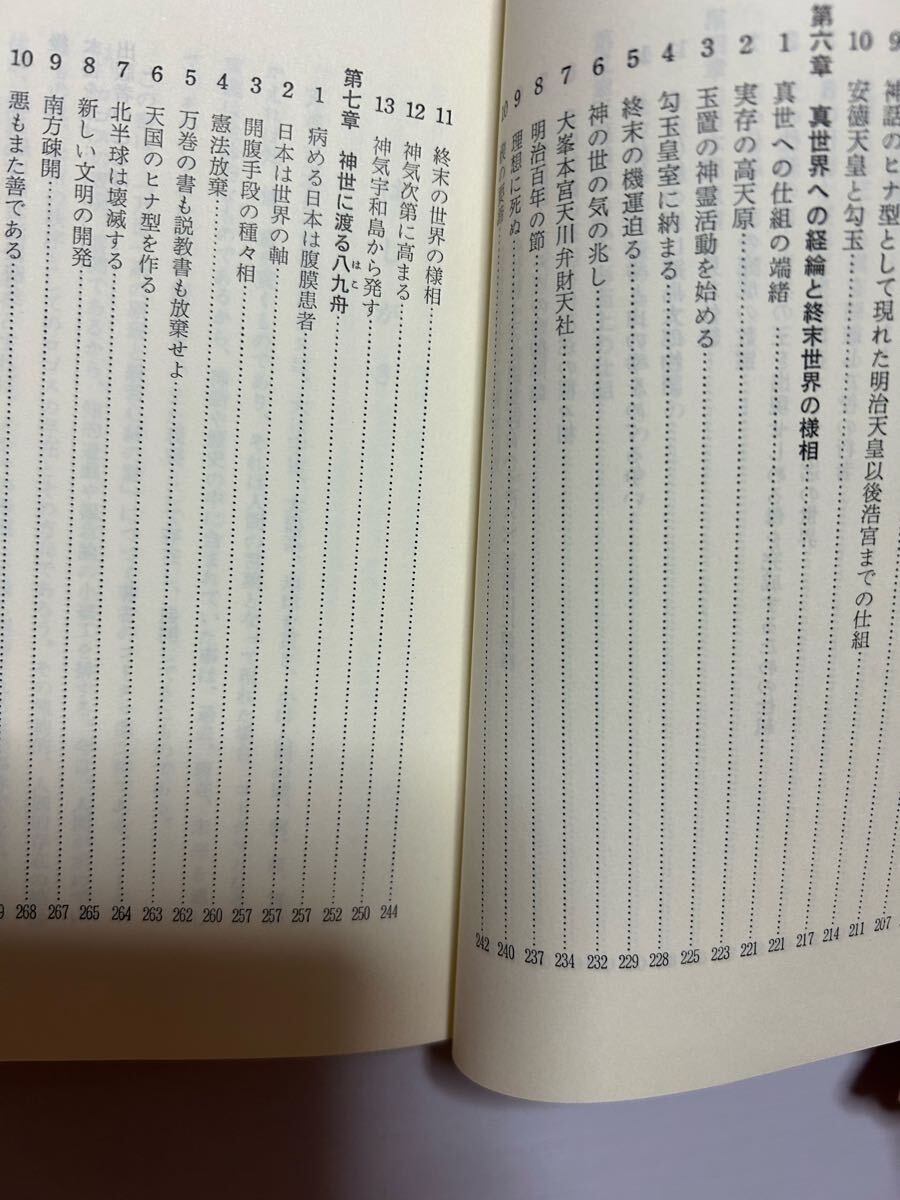 9 神話のヒナ型として現れた明治天皇以後浩宮までの仕組 214
10 安徳天皇と勾玉 217
第六章 真世界への経綸と終末世界の様相 221
1 真世への仕組の端緒 221
2 実存の高天原 223
3 玉置の神霊活動を始める 225
4 勾玉皇室に納まる 228
5 終末の機運迫る 229
6 神の世の気の兆し 232
7 大峯本宮天川弁財天社 234
8 明治百年の節 237
9 理想に死ぬ 240
10 242
11 終末の世界の様相 244
12 神気次第に高まる 250
13 神気宇和島から発す 252
第七章 神世に渡る八九舟(はこ) 257
1 病める日本は腹膜患者 257
2 日本は世界の軸 257
3 開腹手段の種々相 260
4 憲法放棄 262
5 万巻の書も説教書も放棄せよ 263
6 天国のヒナ型を作る 264
7 北半球は壊滅する 265
8 新しい文明の開発 267
9 南方疎開 268
10 悪もまた善である